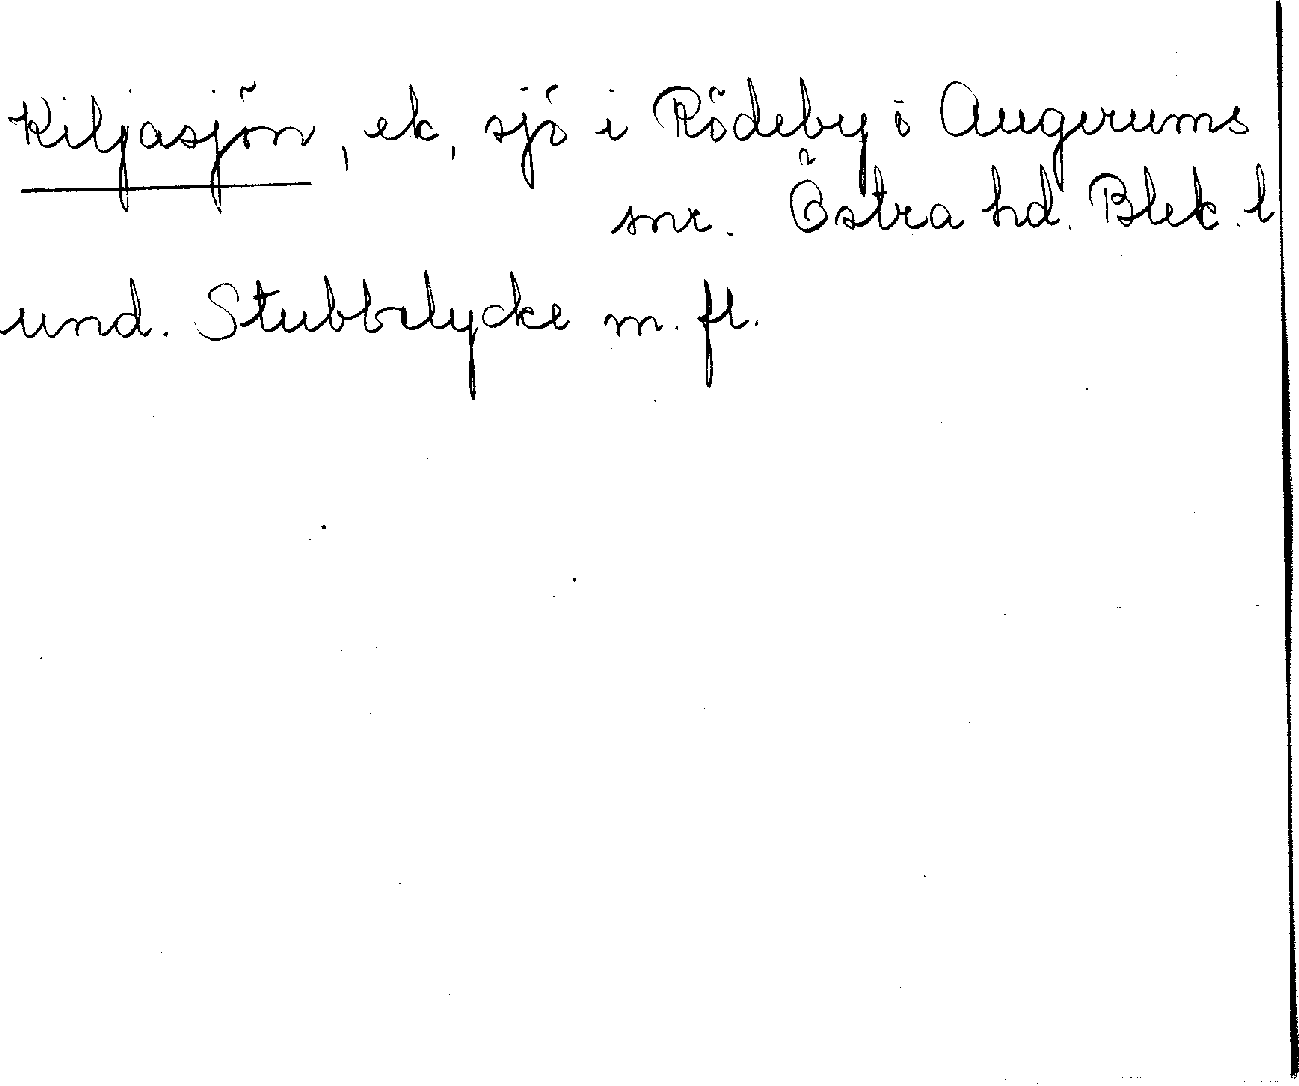 Kiljasjön, ek, sjö i Rödeby i Augerums
snr. Östra hd. Blek. l
und. Stubbelycke m. fl.